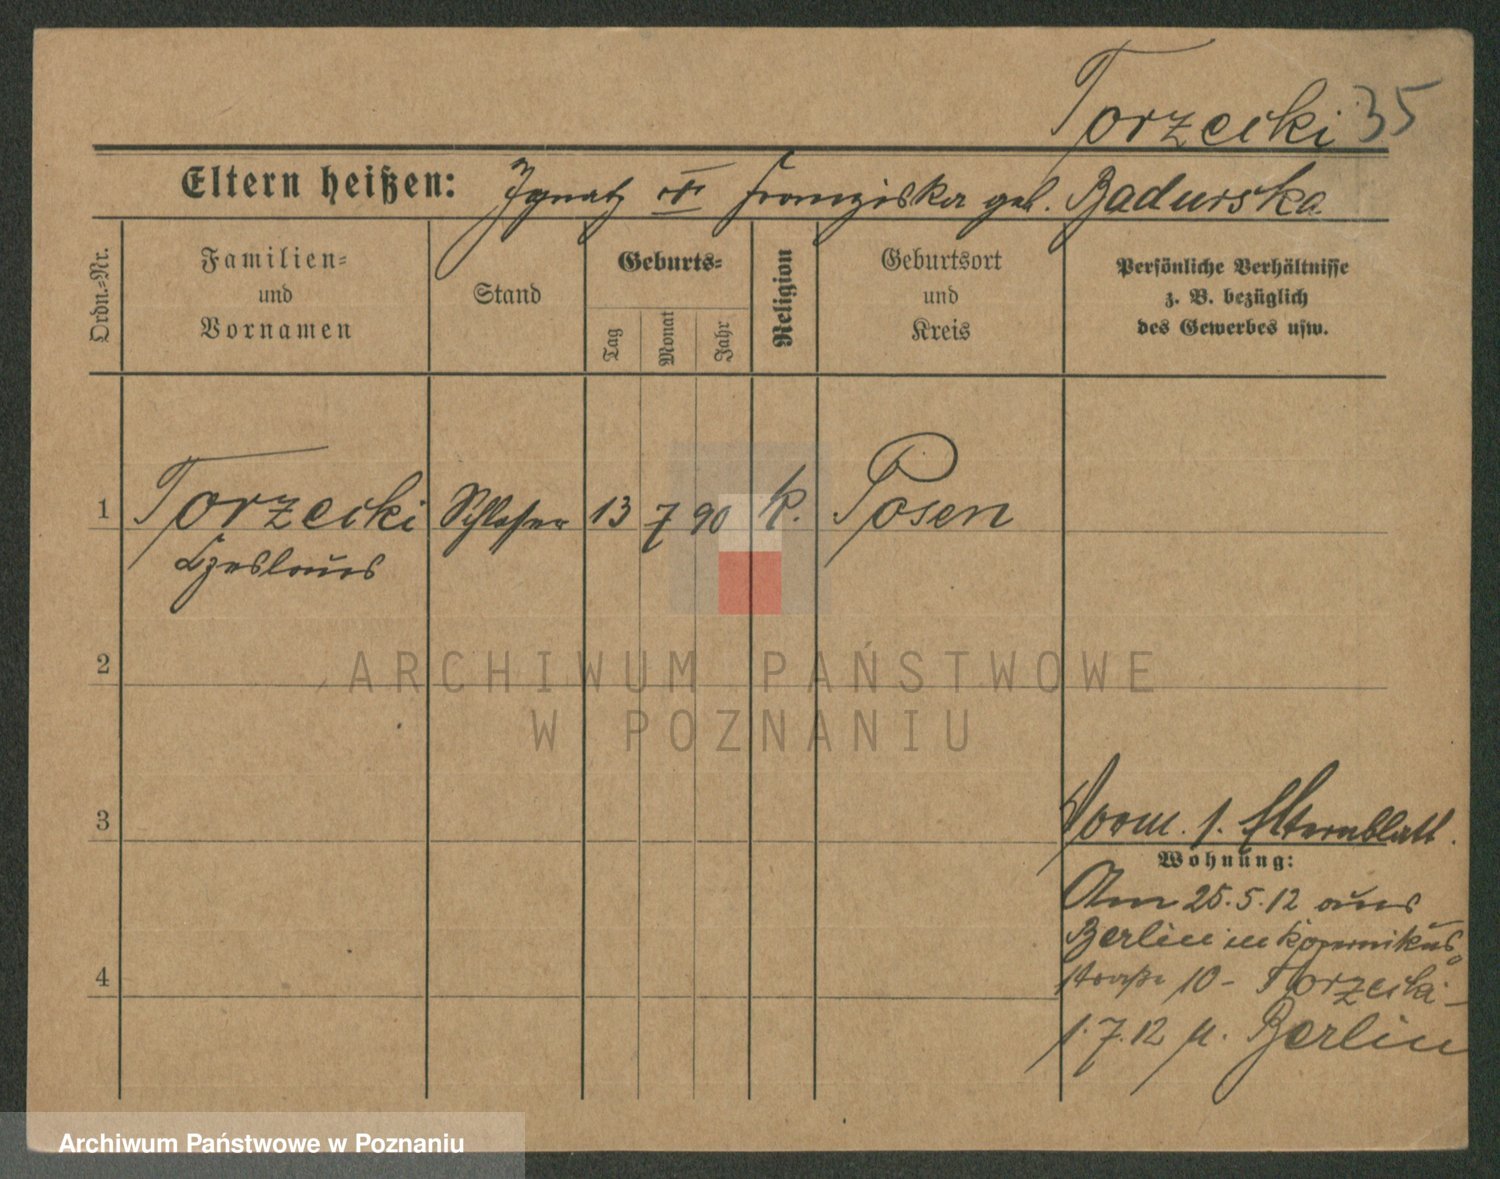 Torzecki 35
Eltern heißen: Ignatz u. Franziska geb. Badurska
Ordn.-Nr.
Familien-
und
Vornamen
Stand
Geburts-
Tag
Monat
Jahr
Religion
Geburtsort
und
Kreis
Persönliche Verhältnisse
z. B. bezüglich
des Gewerbes usw.
1 Torzecki Schlosser 13 7 90 k. Posen
Czeslaus
2
ARCHIWUM PAŃSTWOWE
W POZNANIU
3
Vorm. s. Elternblatt.
Wohnung:
Am 25.5.12 aus
Berlin in Kopernikus
straße 10 - Torzecki -
4
1.7.12 n. Berlin
Archiwum Państwowe w Poznaniu